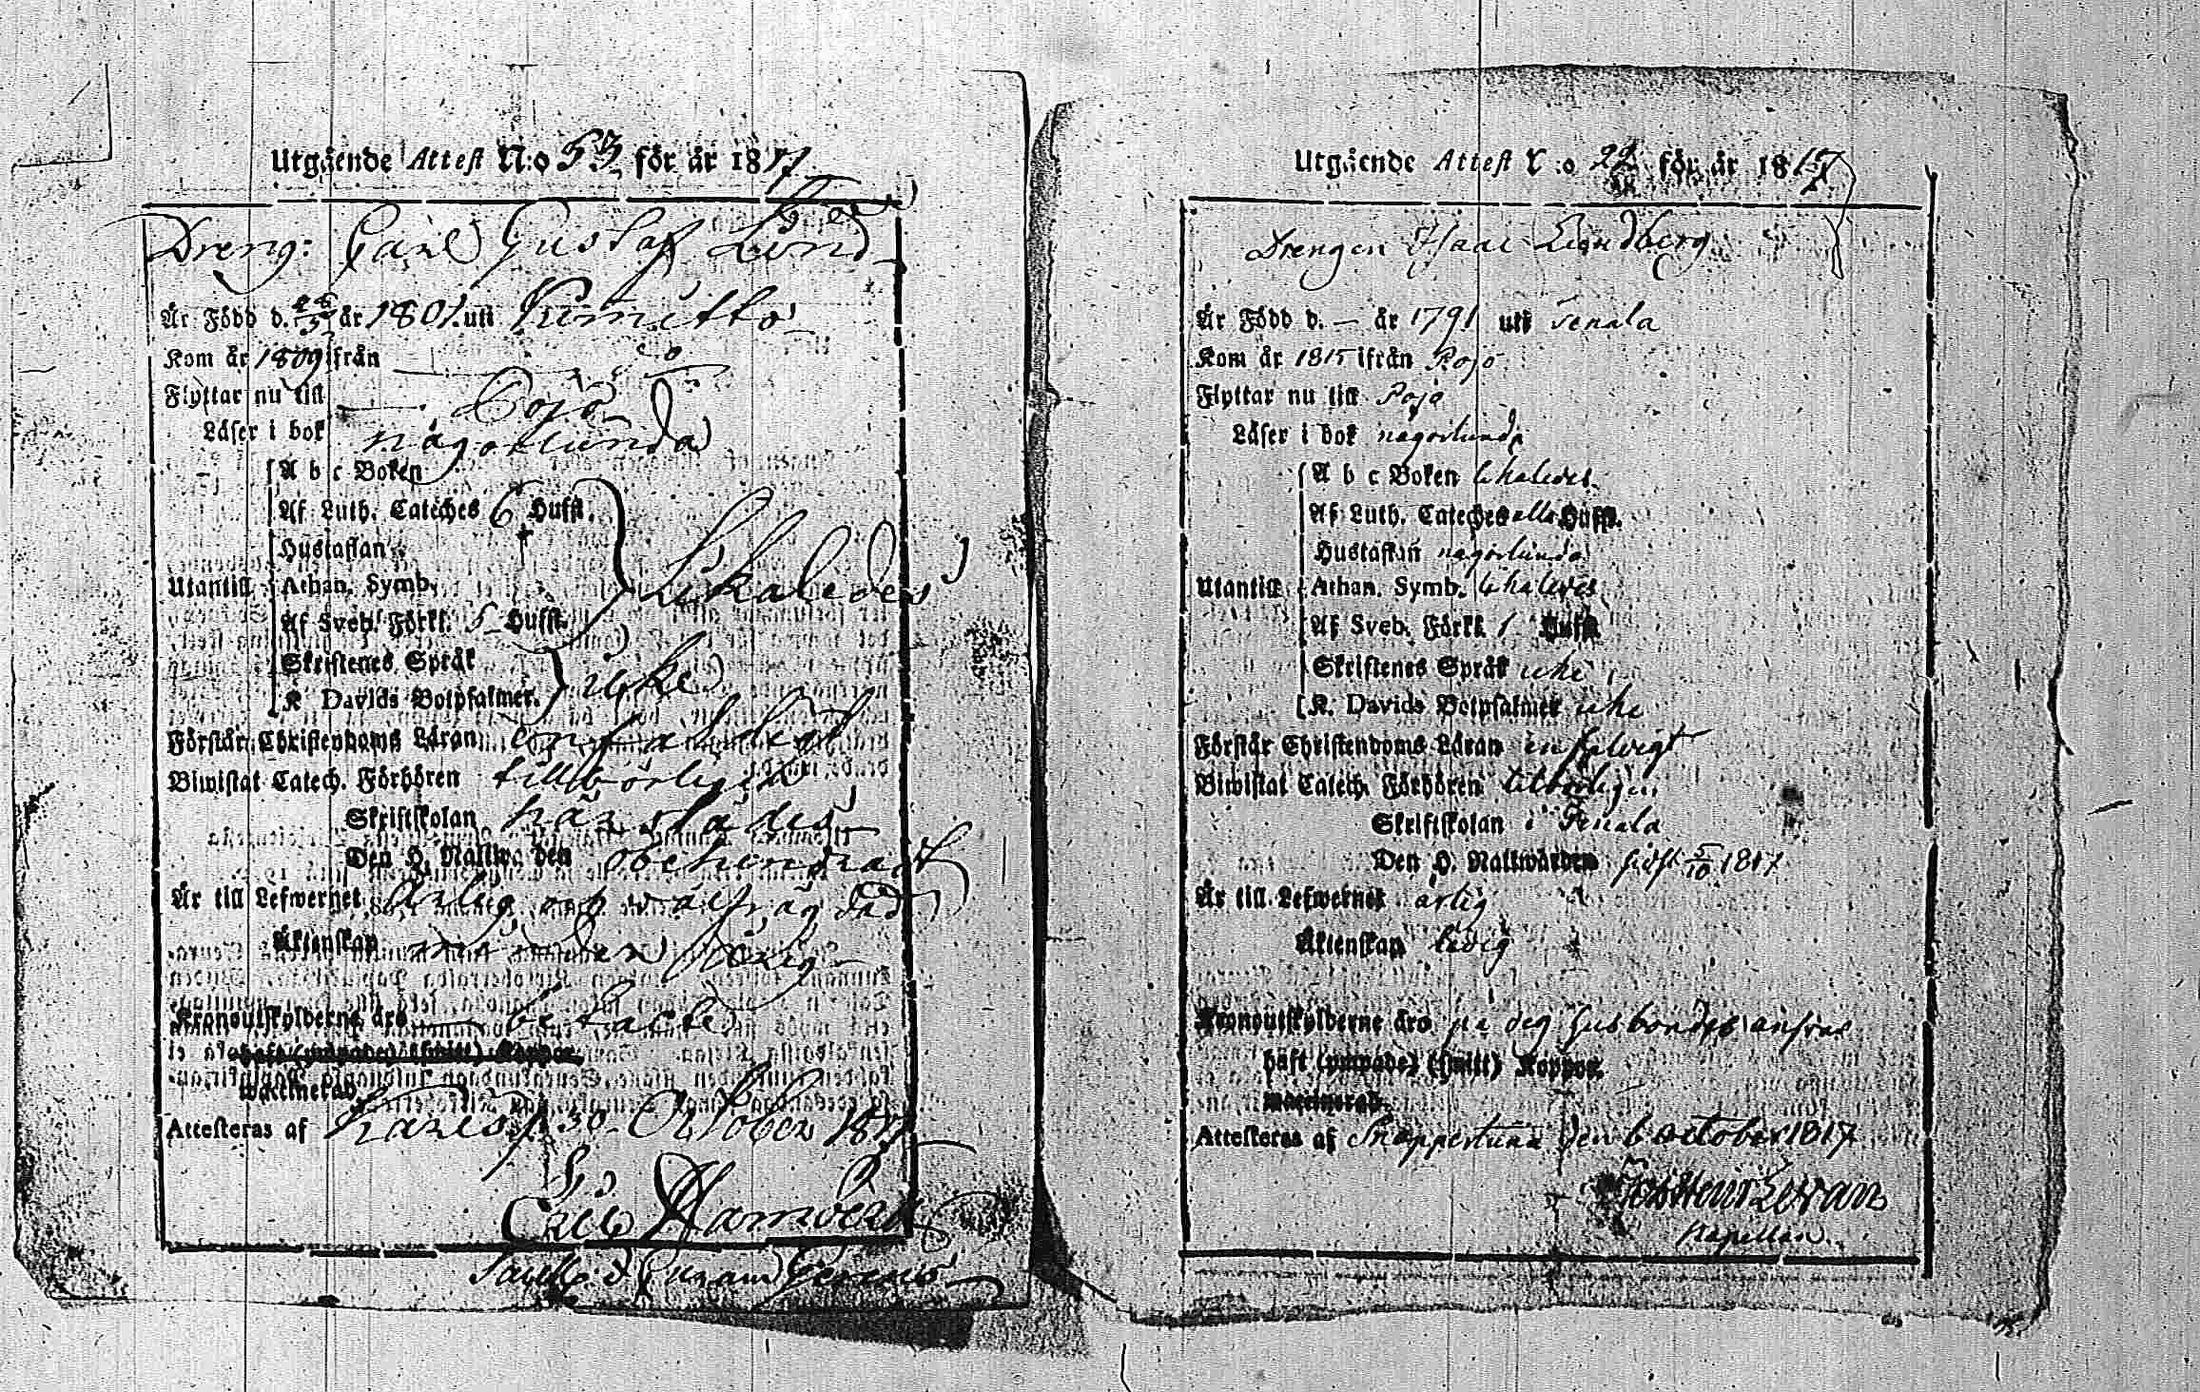 Utgående Attest N:o 53 för år 1817.
Dreng: Carl Gustaf Lind
Är Född d. 28/5 år 1801. uti Kimitto
Kom år 1809 ifrån
Flyttar nu till Pojo
Läser i bok någorlunda
A b c Boken
Af Luth. Cateches 6 Hufst.
Hustaflan
Utantill Athan. Symb. Likaledes
Af Sveb. Förkl. 5 Hufst.
Skriftenes Språk
K Davids Botpsalmer. icke
Förstår Christendoms Läran enfaldigt
Biwistat Catech. Förhören tillbörligen
Skriftskolan härstädes
Den H. Nattward den obehindradt
Är till Lefwernet ärlig och välfrägdad
Äktenskap
Kronoutskylderne äro betalte
haft (ympade) (smitt) Koppor.
waccinerad.
Attesteras af Karis d. 30 October 1817
Utgående Attest N:o 22 för år 1817.
Drengen Isaac Lundberg
Är Född d. — år 1791 uti Tenala
Kom år 1815 ifrån Pojo
Flyttar nu till Pojo
Läser i bok någorlunda
A b c Boken likaledes.
Af Luth. Cateches alla Hufst.
Hustaflan någorlunda
Utantill Athan. Symb. likaledes
Af Sveb. Förkl. 1 Hufst.
Skriftenes Språk icke
K. Davids Botpsalmer icke
Förstår Christendoms Läran enfaldigt
Biwistat Catech. Förhören tilbörligen
Skriftskolan i Tenala
Den H. Nattwarden sidst 5/10 1817
Är till Lefwernet ärlig
Äktenskap ledig
Kronoutskylderne äro på deß Husbondes ansvar
haft (ympade) (smitt) Koppor.
waccinerad.
Attesteras af Snappertuna den 6 October 1817
Kapellan.